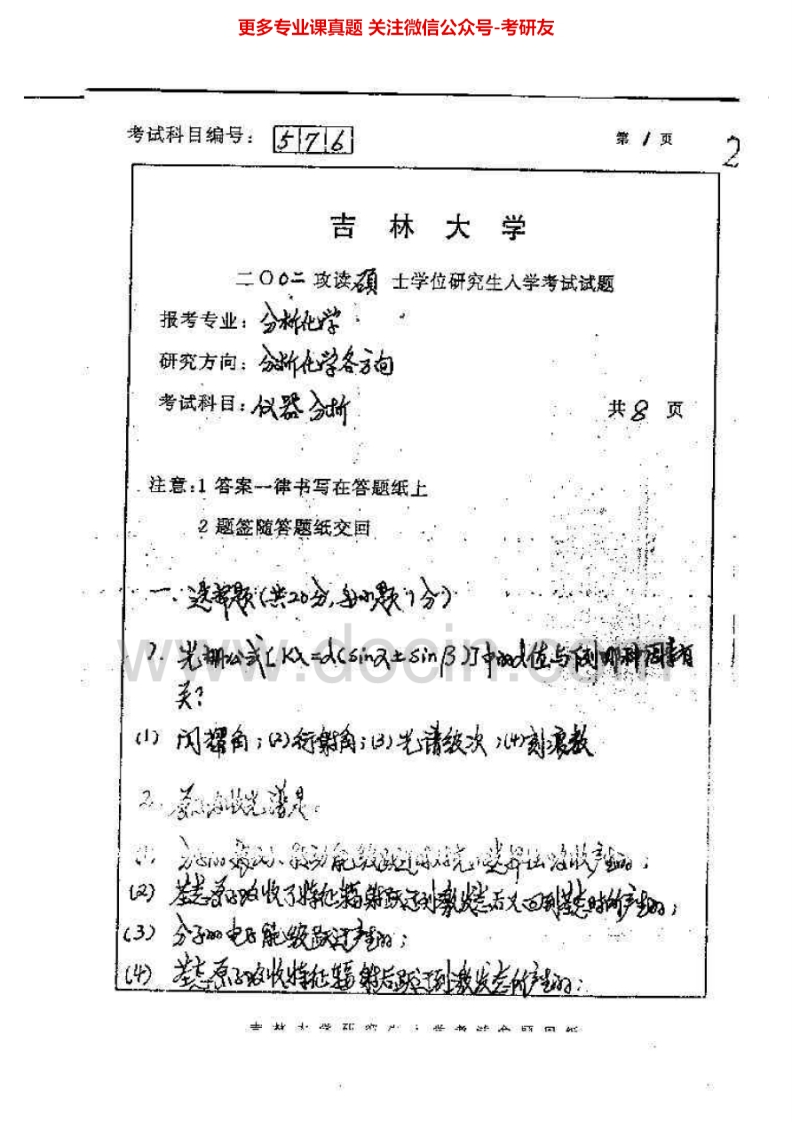 更多专业课真题 关注微信公众号-考研友
考试科目编号： 576
第 1 页
2
吉 林 大 学
二〇〇二 攻读硕 士学位研究生入学考试试题
报考专业：分析化学
研究方向：分析化学各方向
考试科目：仪器分析
共 8 页
注意：1 答案一律书写在答题纸上
2 题签随答题纸交回
一、选择题（共20分，每小题1分）
1. 光栅公式[Kλ=d(sinα±sinβ)]中的d值与下列哪种因素有
关？
(1) 闪耀角；(2)衍射角；(3)光谱级次；(4)刻痕数
www.docin.com
2. 原子吸收光谱是：
(1) 分子的振动、转动能级跃迁时对光的选择性吸收产生的；
(2) 基态原子吸收了特征辐射跃迁到激发态后又回到基态时所产生的；
(3) 分子的电子能级跃迁产生的；
(4) 基态原子吸收特征辐射后跃迁到激发态所产生的；